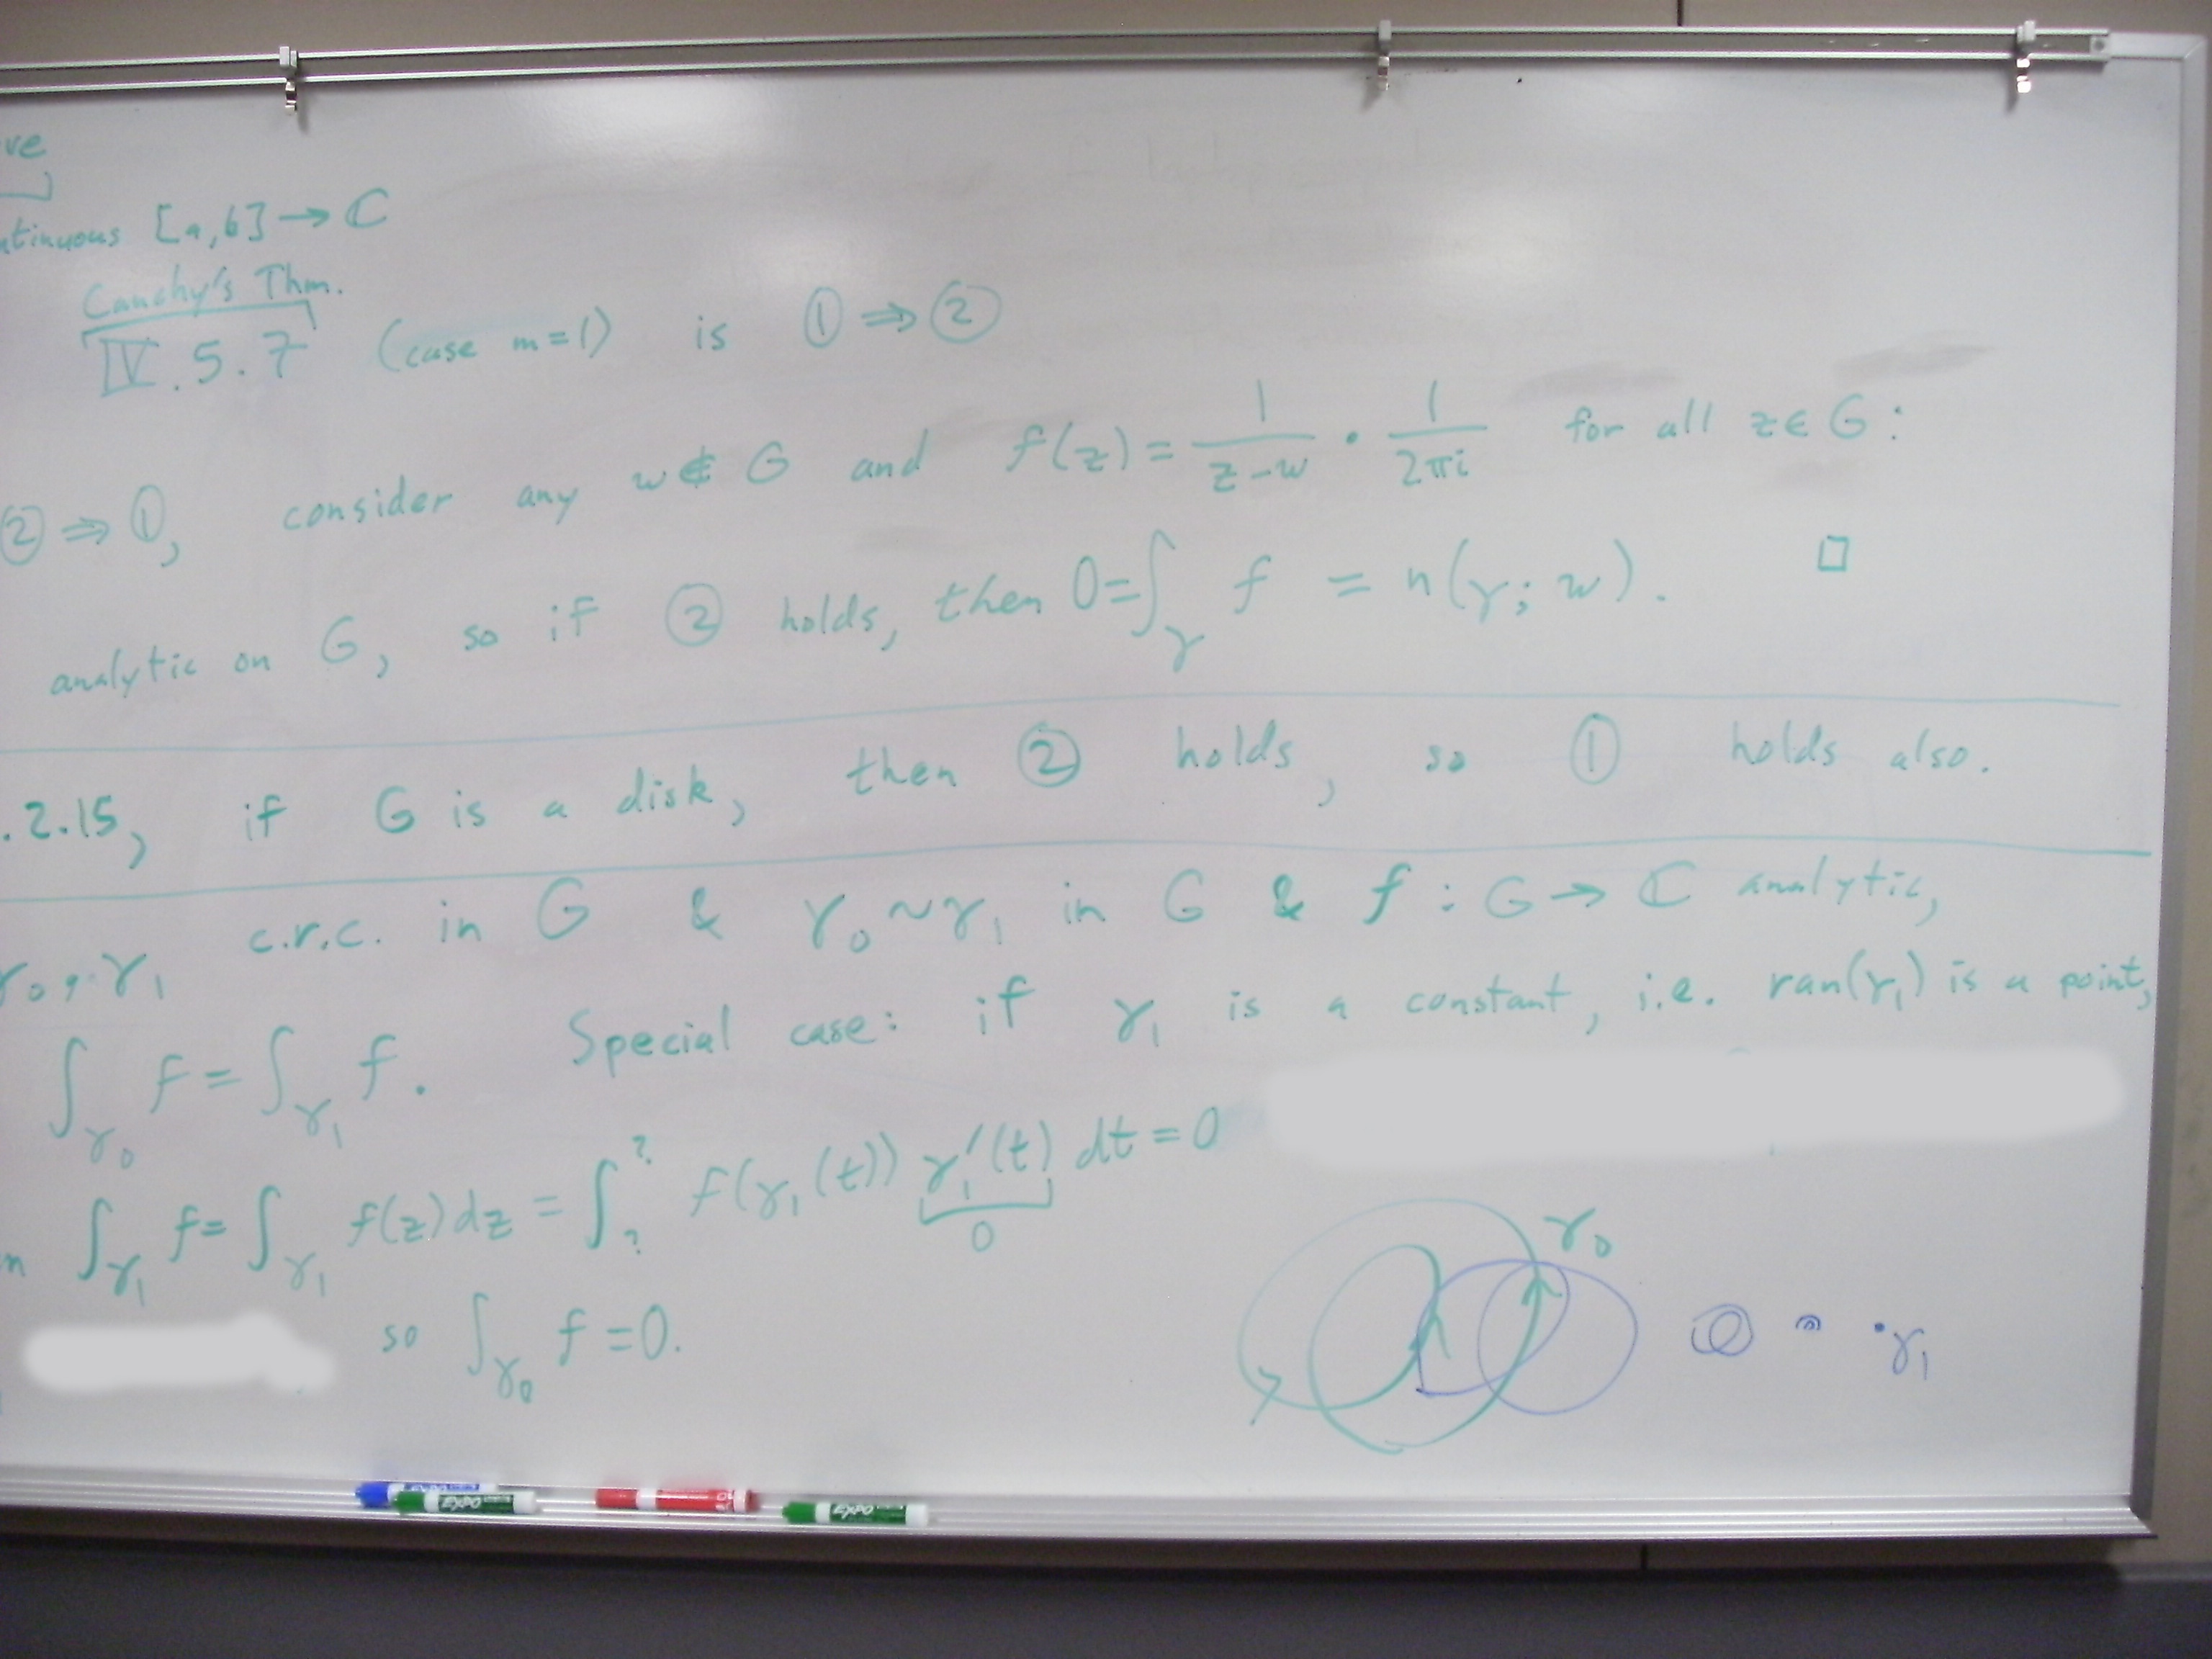 ve
ntinuous [a,b] → ℂ
Cauchy's Thm.
IV.5.7 (case m=1) is ① ⇒ ②
② ⇒ ①, consider any w ∉ G and f(z) = 1/(z-w) · 1/(2πi) for all z ∈ G:
analytic on G, so if ② holds, then 0 = ∫_γ f = n(γ; w). □
.2.15, if G is a disk, then ② holds, so ① holds also.
γ₀, γ₁ c.r.c. in G & γ₀ ~ γ₁ in G & f : G → ℂ analytic,
∫_γ₀ f = ∫_γ₁ f. Special case: if γ₁ is a constant, i.e. ran(γ₁) is a point,
n ∫_γ₁ f = ∫_γ₁ f(z) dz = ∫_?^? f(γ₁(t)) γ₁′(t) dt = 0
0
so ∫_γ₀ f = 0.
γ₀
γ₁
EXPO
EXPO
EXPO